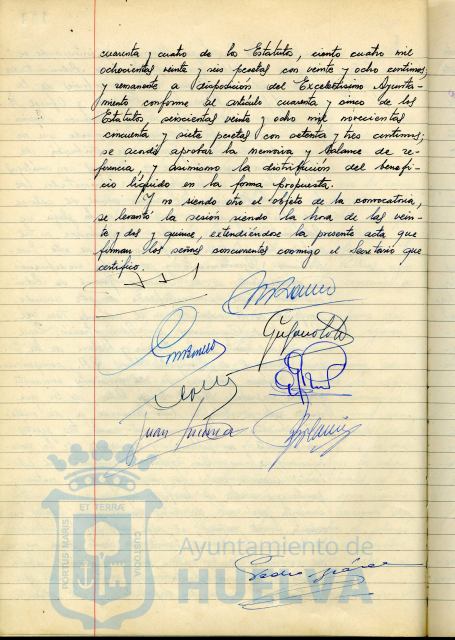 cuarenta y cuatro de los Estatutos, ciento cuatro mil
ochocientas veinte y seis pesetas con veinte y ocho centimos,
y remanente a disposición del Excelentísimo Ayunta-
miento conforme el artículo cuarenta y cinco de los
Estatutos, seiscientas veinte y ocho mil novecientas
cincuenta y siete pesetas con setenta y tres centimos;
se acordó aprobar la memoria y Balance de re-
ferencia, y asimismo la distribución del benefi-
cio líquido en la forma propuesta.
Y no siendo otro el objeto de la convocatoria,
se levantó la sesión siendo la hora de las vein-
te y dos y quince, extendiéndose la presente acta que
firman los señores concurrentes conmigo el Secretario que
certifico.
Juan
PORTUS MARIS
ET TERRÆ
CUSTODIA
Ayuntamiento de
HUELVA
Pedro